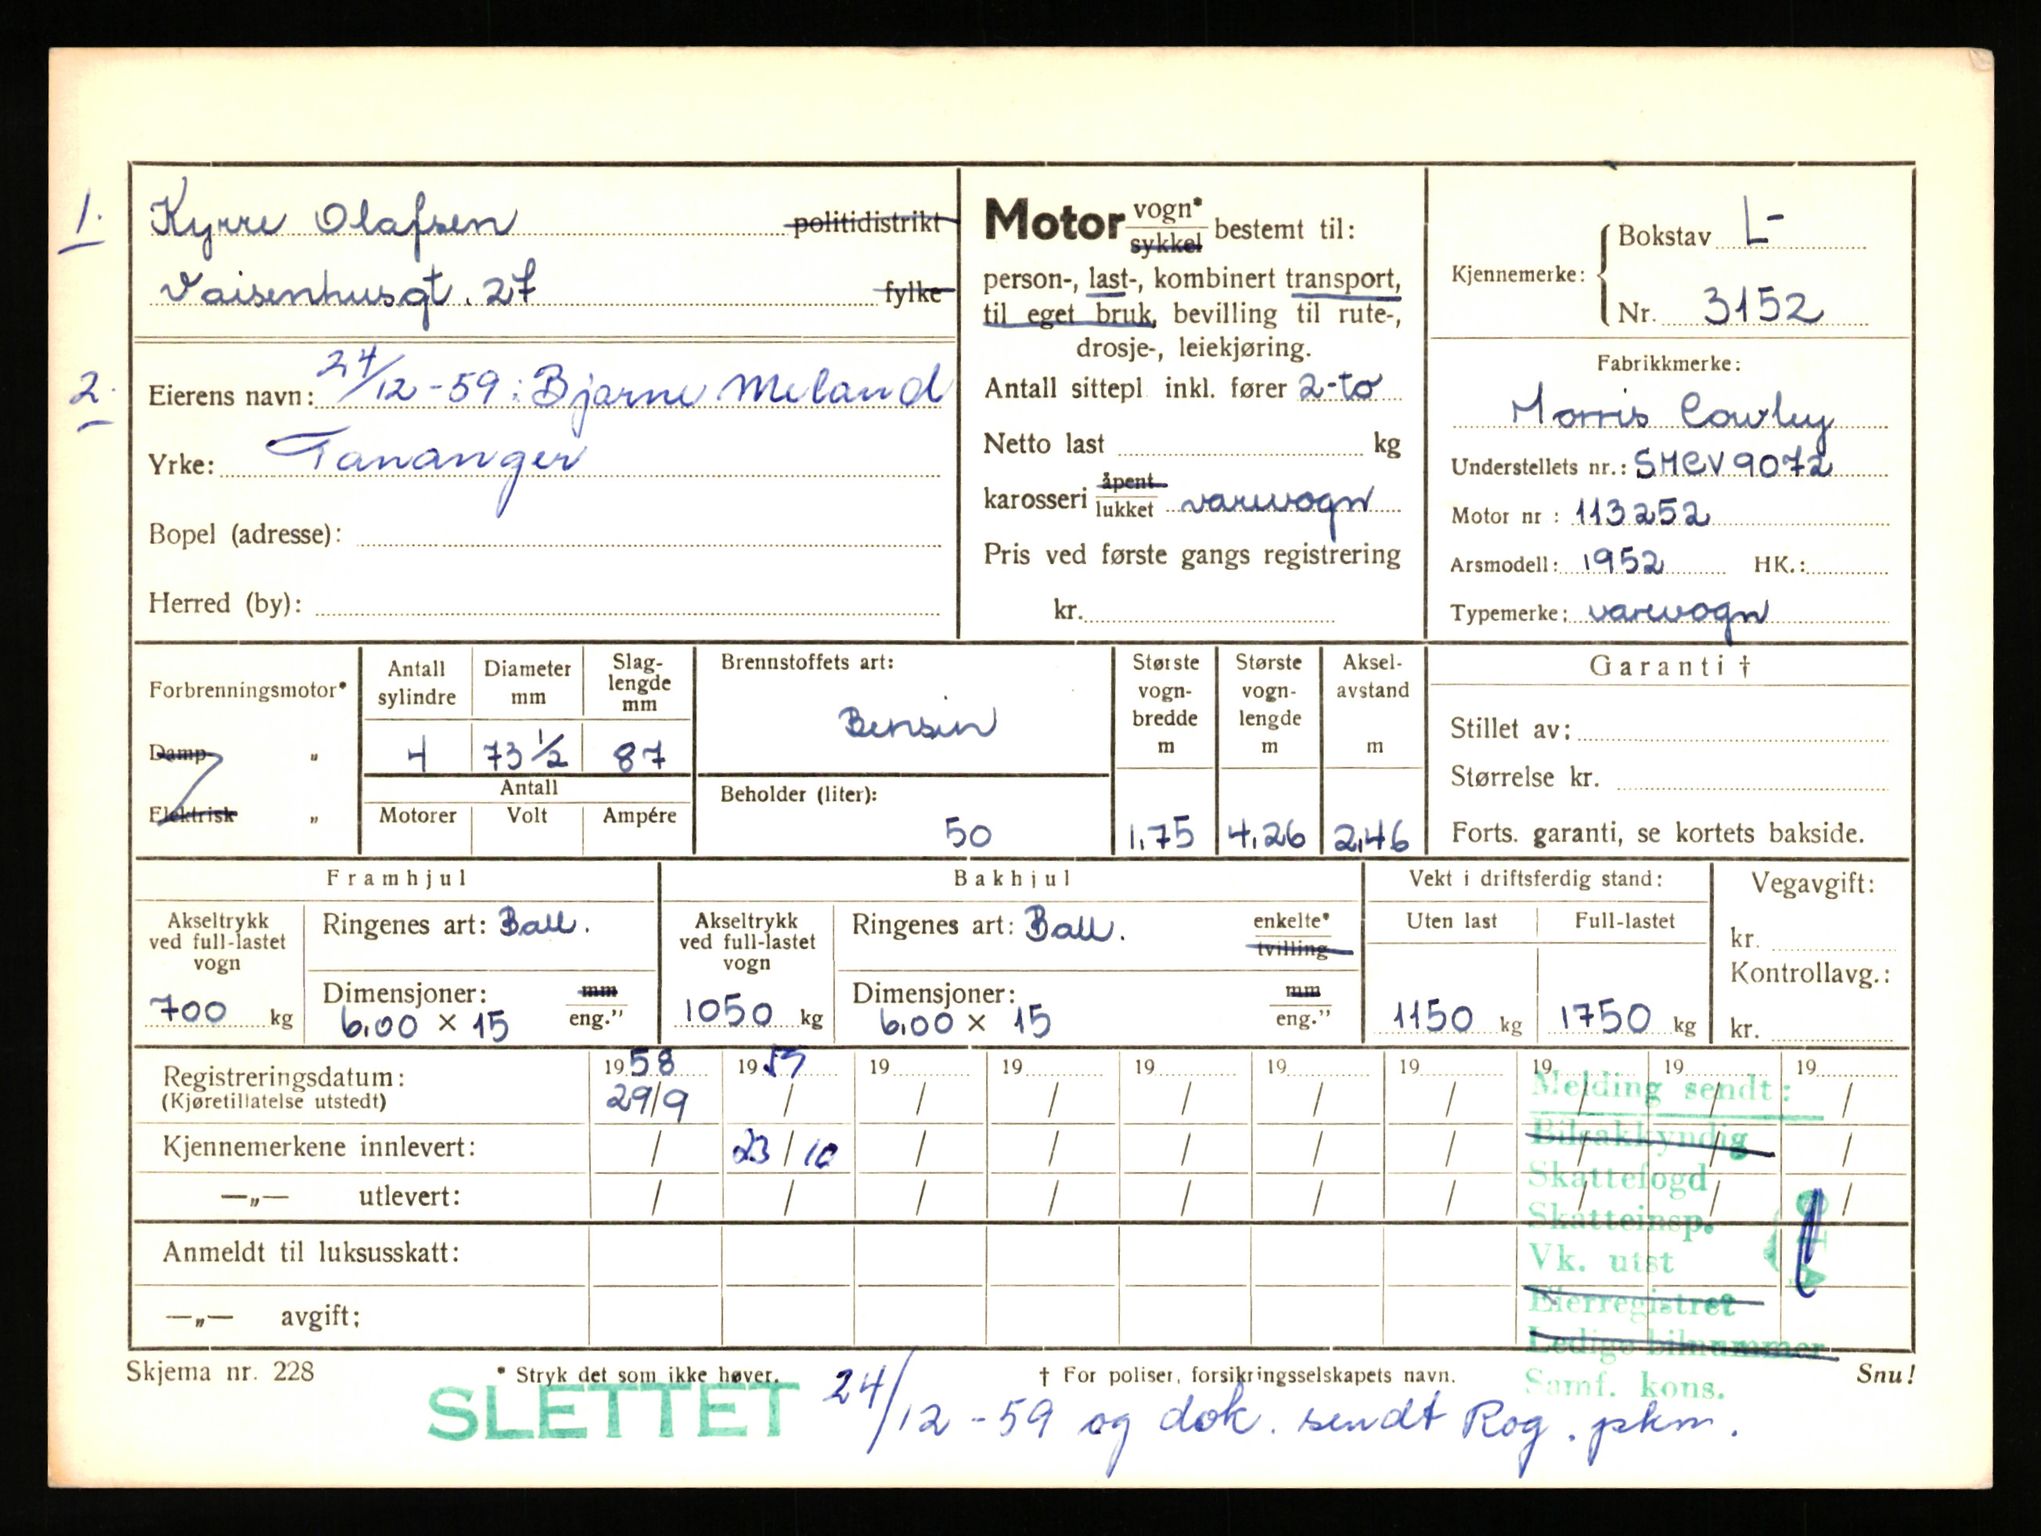 1. Kyrre Olafsen politidistrikt
Vaisenhusgt. 27 fylke
2. Eierens navn: 24/12-59: Bjarne Meland
Yrke: Tananger
Bopel (adresse):
Herred (by):
Motor vogn* sykkel bestemt til:
person-, last-, kombinert transport,
til eget bruk, bevilling til rute-,
drosje-, leiekjøring.
Antall sittepl inkl. fører 2-to
Netto last kg
karosseri åpent lukket varevogn
Pris ved første gangs registrering
kr.
Kjennemerke: Bokstav L-
Nr. 3152
Fabrikkmerke:
Morris Cowley
Understellets nr.: SMCV9072
Motor nr : 113252
Arsmodell: 1952 HK.:
Typemerke: varevogn
Forbrenningsmotor*
Damp „
Elektrisk „
Antall sylindre
4
Diameter mm
73 1/2
Slag-lengde mm
87
Antall
Motorer Volt Ampére
Brennstoffets art:
Bensin
Beholder (liter):
50
Største vogn-bredde m
1,75
Største vogn-lengde m
4,26
Aksel-avstand m
2,46
Garanti †
Stillet av:
Størrelse kr.
Forts. garanti, se kortets bakside.
Framhjul
Akseltrykk ved full-lastet vogn
700 kg
Ringenes art: Ball.
Dimensjoner: mm
6,00 × 15 eng."
Bakhjul
Akseltrykk ved full-lastet vogn
1050 kg
Ringenes art: Ball. enkelte* tvilling
Dimensjoner: mm
6,00 × 15 eng."
Vekt i driftsferdig stand:
Uten last Full-lastet
1150 kg 1750 kg
Vegavgift:
kr.
Kontrollavg.:
kr.
Registreringsdatum: 1958 1959 19 19 19 19 19 19 19 19
(Kjøretillatelse utstedt) 29/9 / / / / / / / / /
Kjennemerkene innlevert: / 23/10 / / / / / / / /
—„— utlevert: / / / / / / / / / /
Anmeldt til luksusskatt:
—„— avgift:
Melding sendt:
Bilsakkyndig
Skattefogd
Skatteinsp.
Vk. utst
Eierregistret
Ledige bilnummer
Samf. kons.
Skjema nr. 228 * Stryk det som ikke høver. † For poliser, forsikringsselskapets navn. Snu!
SLETTET 24/12-59 og dok. sendt Rog. pkm.